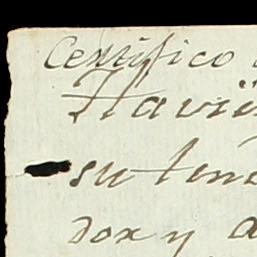 Certifico
Havi
su tene
dor y a